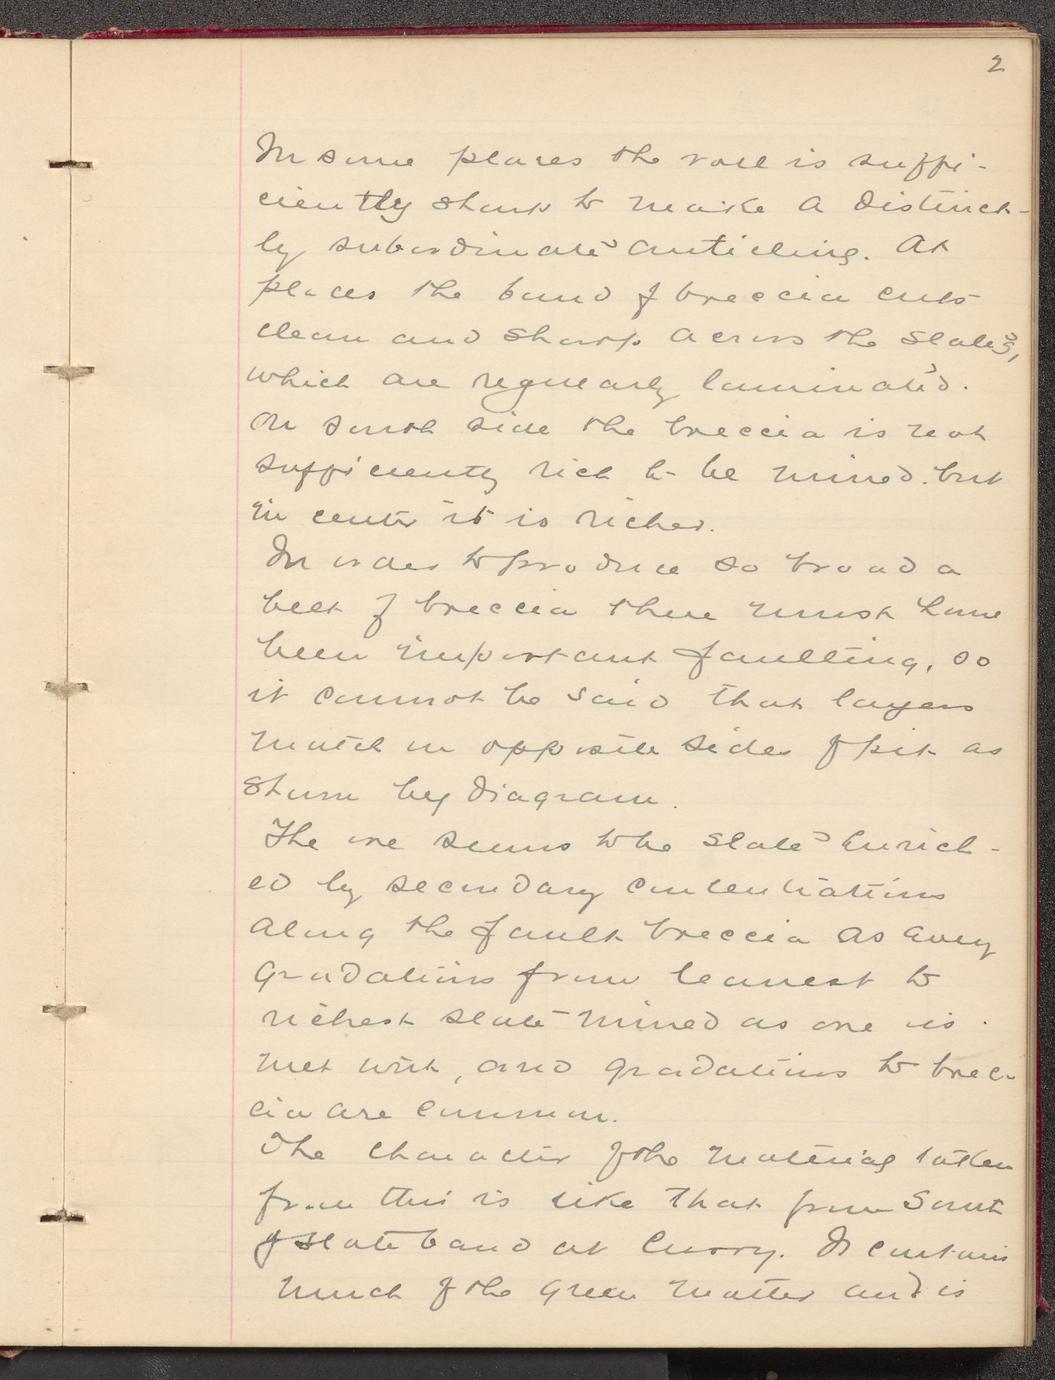 2
In some places the roll is suffi-
ciently sharp to make a distinct-
ly subordinate anticline. At
places the band of breccia cuts
clean and sharp across the slates,
which are regularly laminated.
On south side the breccia is not
sufficiently rich to be mined. but
in center it is richer.
In order to produce so broad a
belt of breccia there must have
been important faulting, so
it cannot be said that layers
match on opposite sides of pit as
shown by diagram.
The ore seems to be slate enrich-
ed by secondary concentrations
along the fault breccia as every
gradations from leanest to
richest slate mined as ore is
met with, and gradations to brec-
cia are common.
The character of the material taken
from this is like that from South
of slate band at Curry. It contains
much of the green matter and is